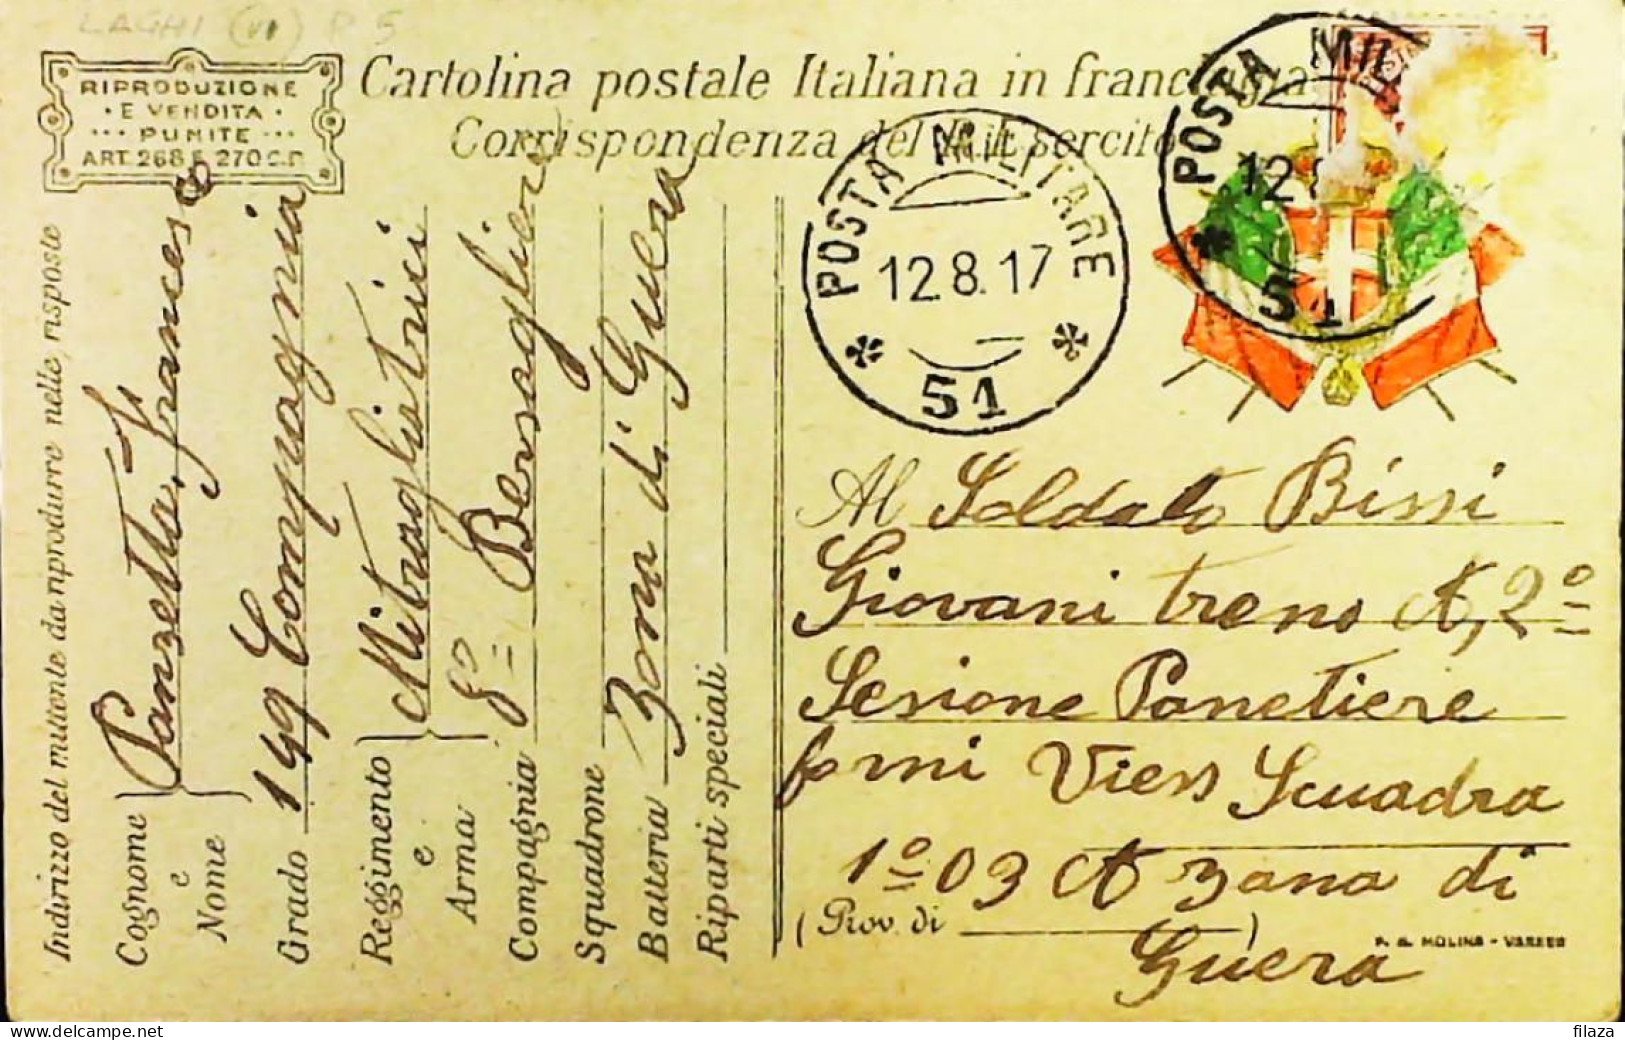 LAGHI (VI) P 5
RIPRODUZIONE
E VENDITA
PUNITE
ART. 268 E 270 C.P.
Cartolina postale Italiana in franchigia
Corrispondenza del R. Esercito
POSTA MILITARE
12.8.17
51
POSTA MIL
12.8
51
Indirizzo del mittente da riprodurre nelle risposte
Cognome e Nome
Panzetta, Francesco
Grado
149 Compagnia
Reggimento e Arma
Mitragliatrici
Compagnia
8º Bersaglieri
Squadrone
Batteria
Zona di Guera
Riparti speciali
Al Soldato Bissi
Giovani treno A, 2º
Sesione Panetiere
forni Viess Scuadra
1º03 A zana di
(Prov. di )
Guera
P. G. MOLINA - VARESE
filaza